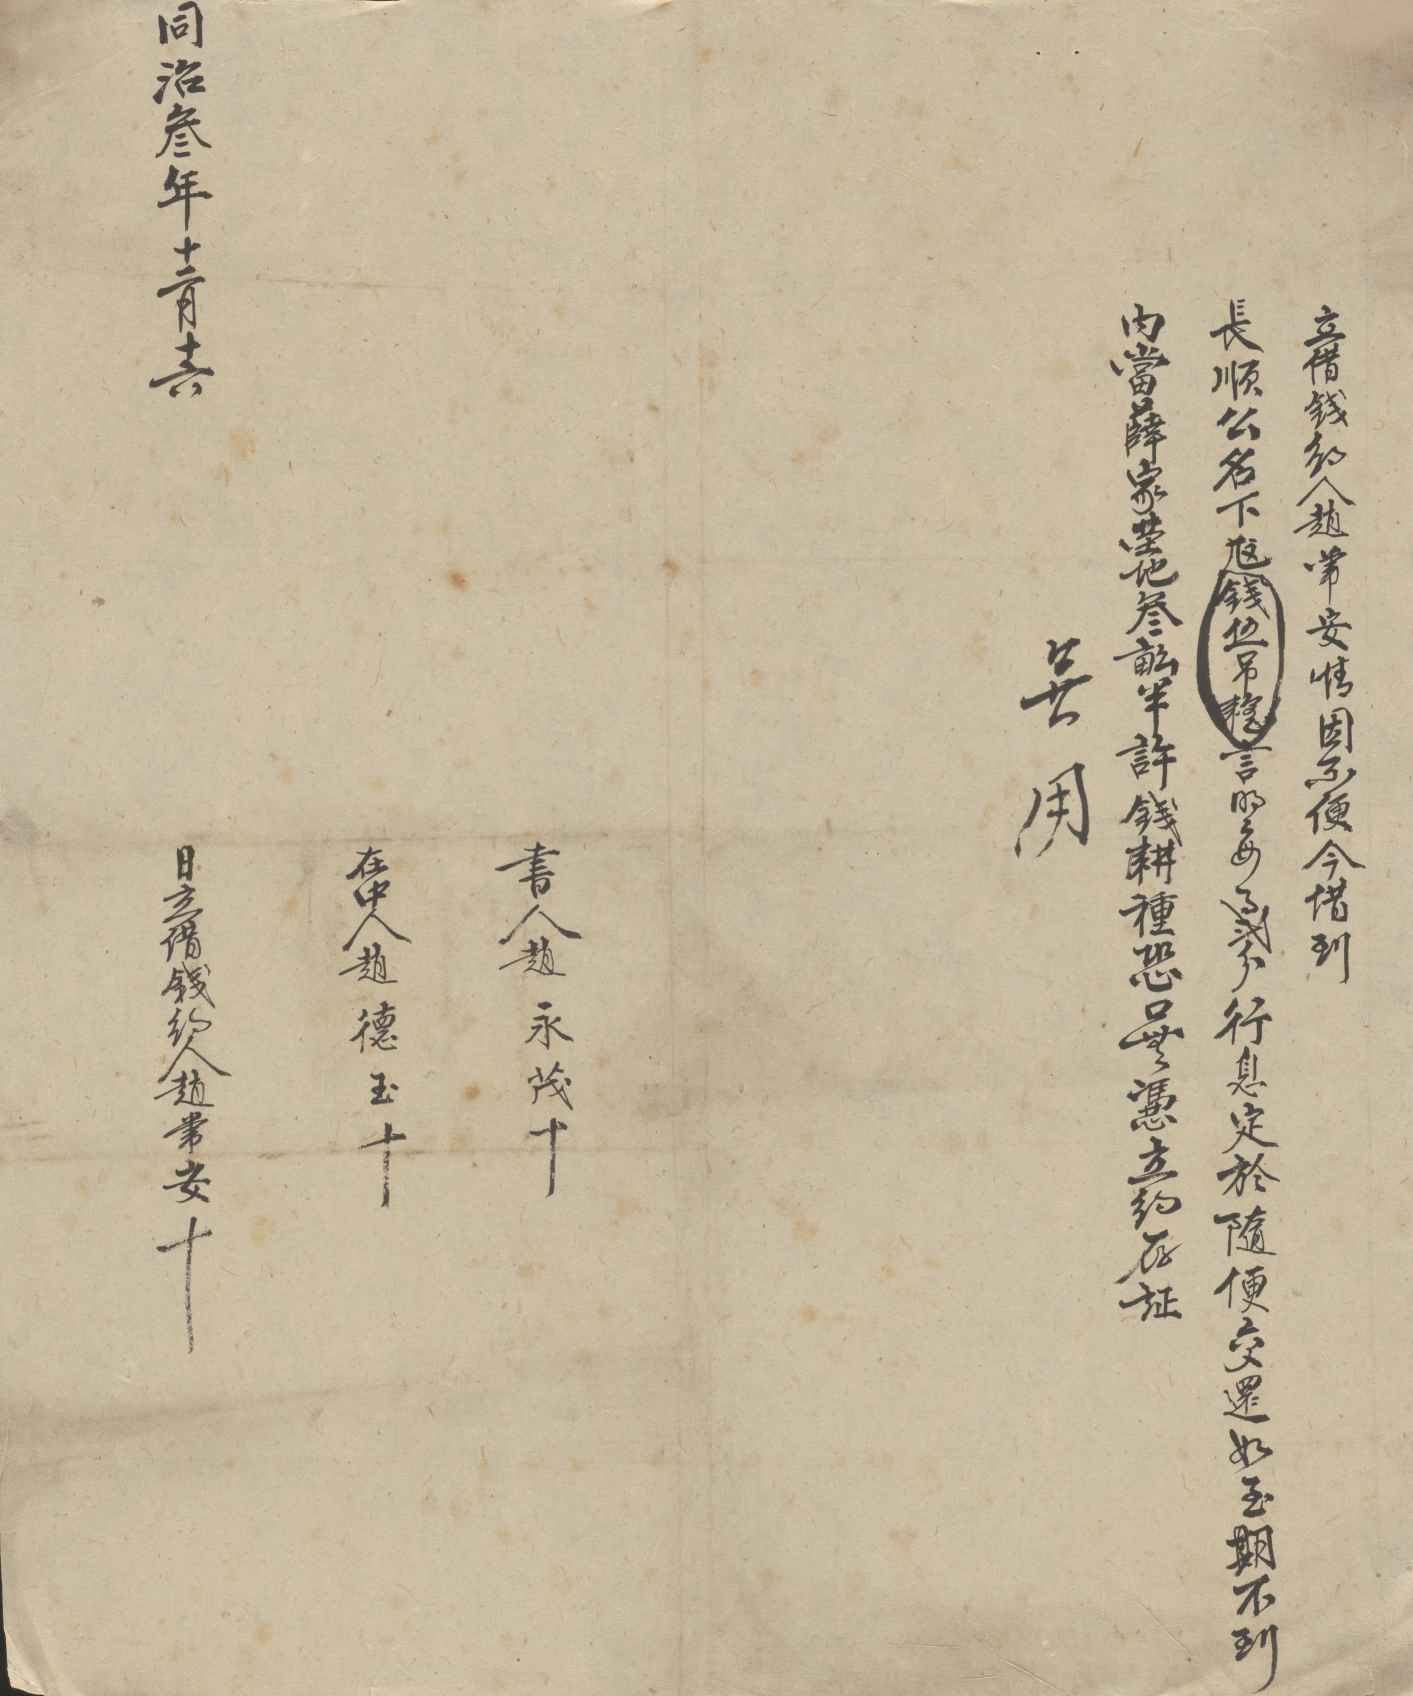 立借錢約人趙常安情因不便今借到
長順公名下尅錢伍吊整言明每月貳分行息定於隨便交還如至期不到
內當薛家塋地叄畝半許錢耕種恐口無憑立約存証
吳用
書人趙永茂十
在中人趙德玉十
同治叁年十二月十六日立借錢約人趙常安十